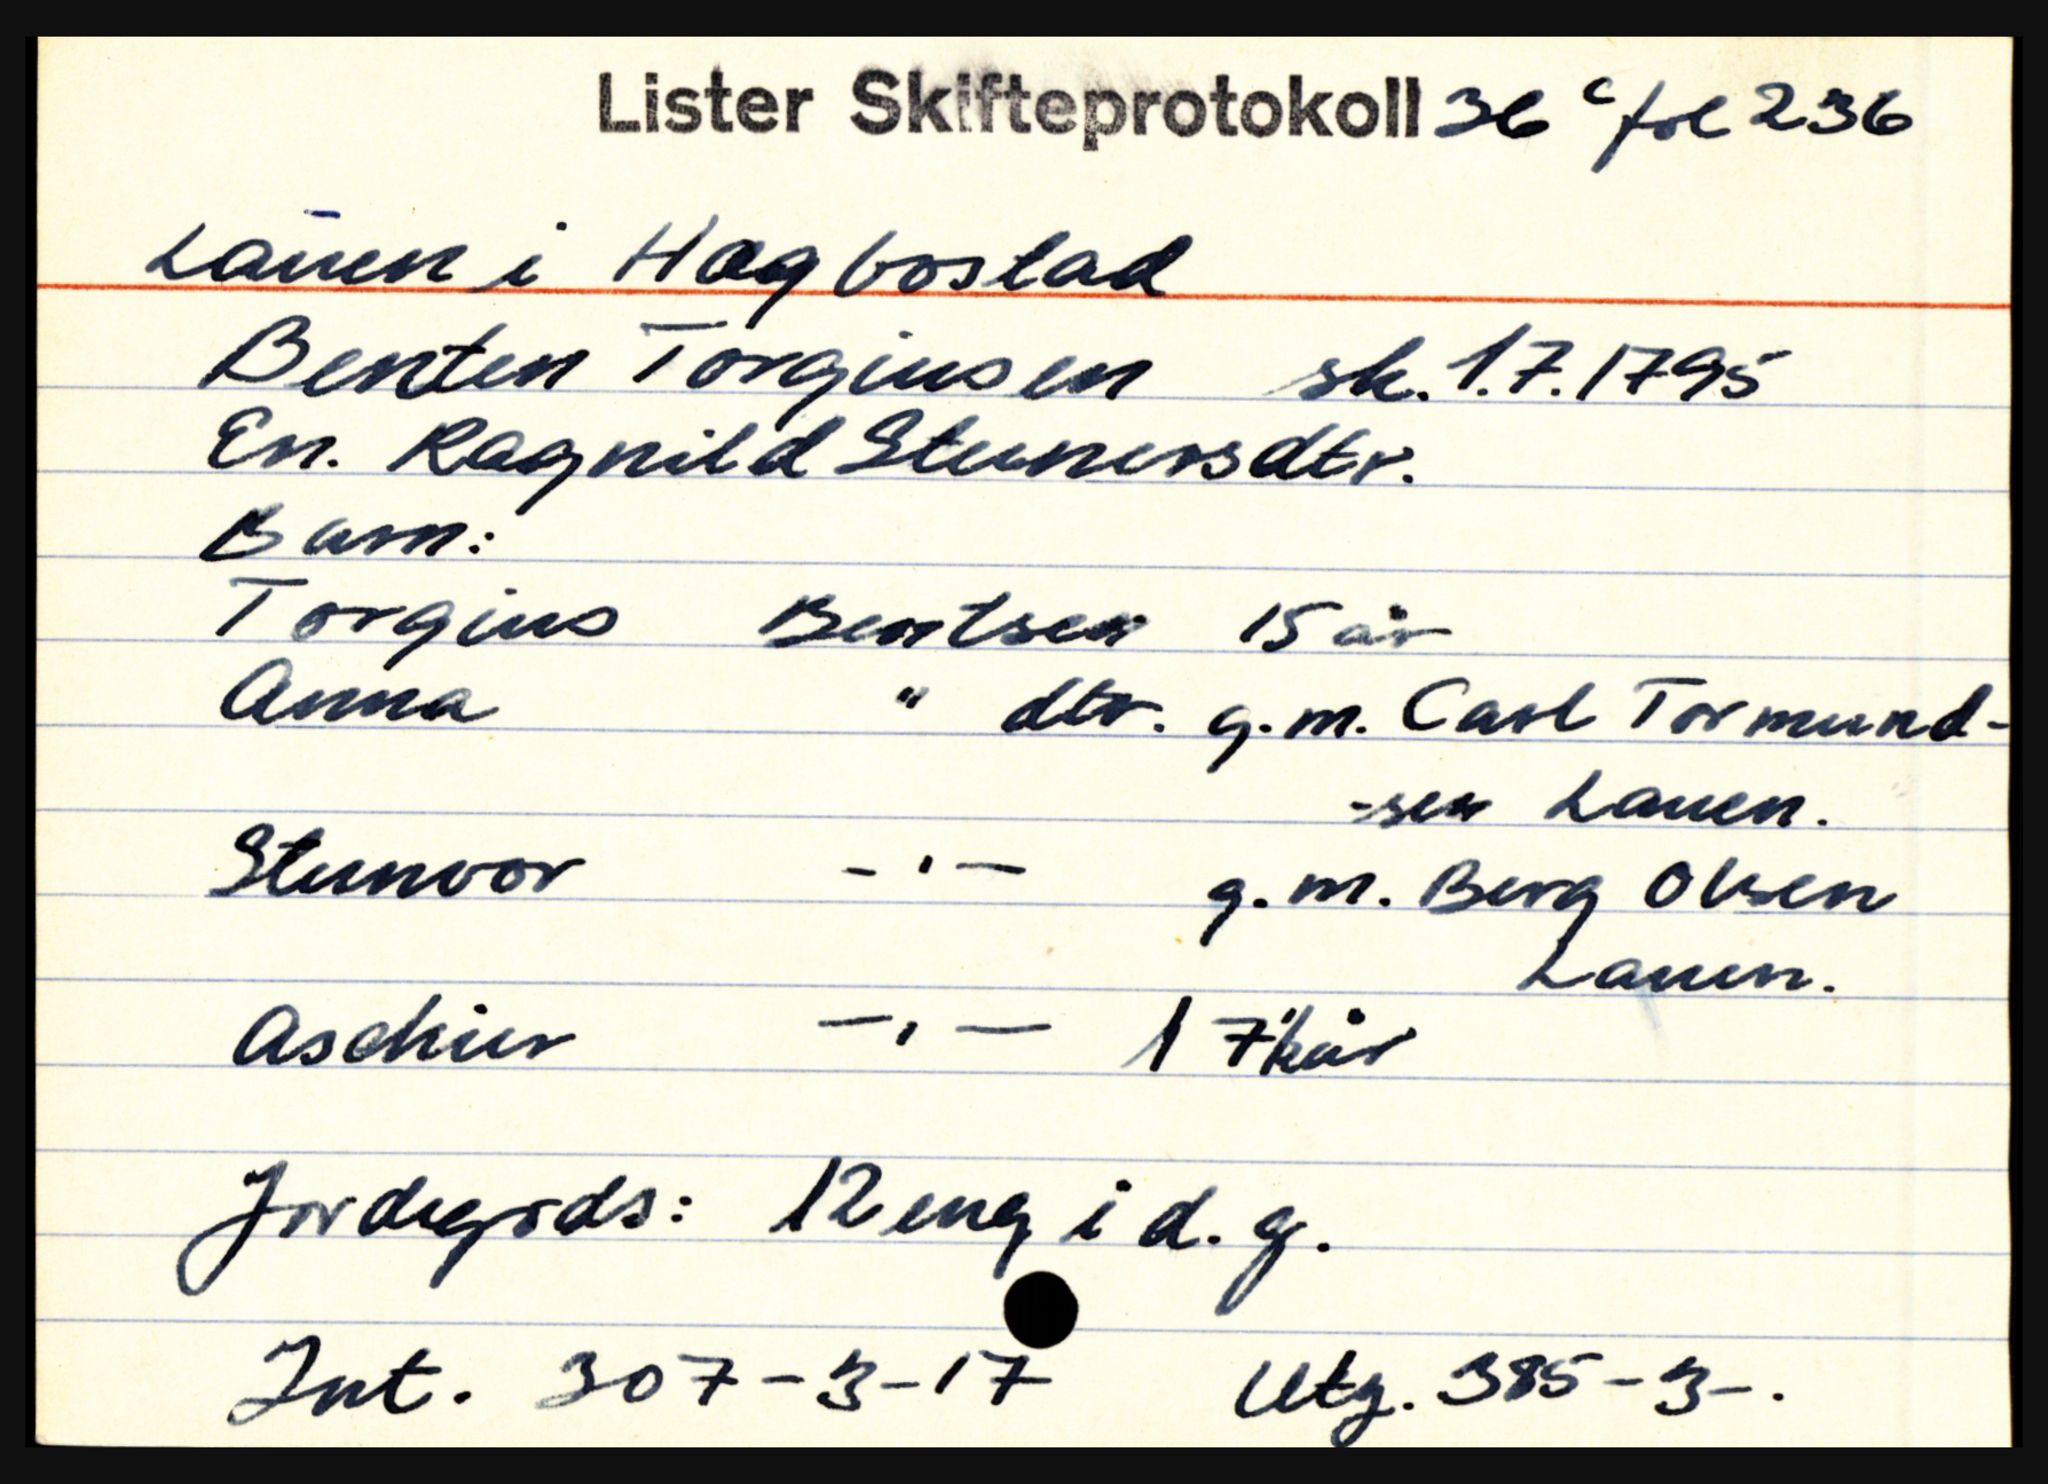 Lister Skifteprotokoll 36 c fol 236
Lauen i Hægbostad
Benten Torgiusen sk. 1.7.1795
En. Ragnild Stenersdtr.
Barn:
Torgius Bentsen 15 år
Anna " dtr. g.m. Carl Tormund-
-sen Lauen.
Stenvor -"- g.m. Berg Olsen
Lauen.
Aschier -"- 17½ år
Jordegods: 12 eng i d. g.
Int. 307-3-17 Utg. 385-3-.